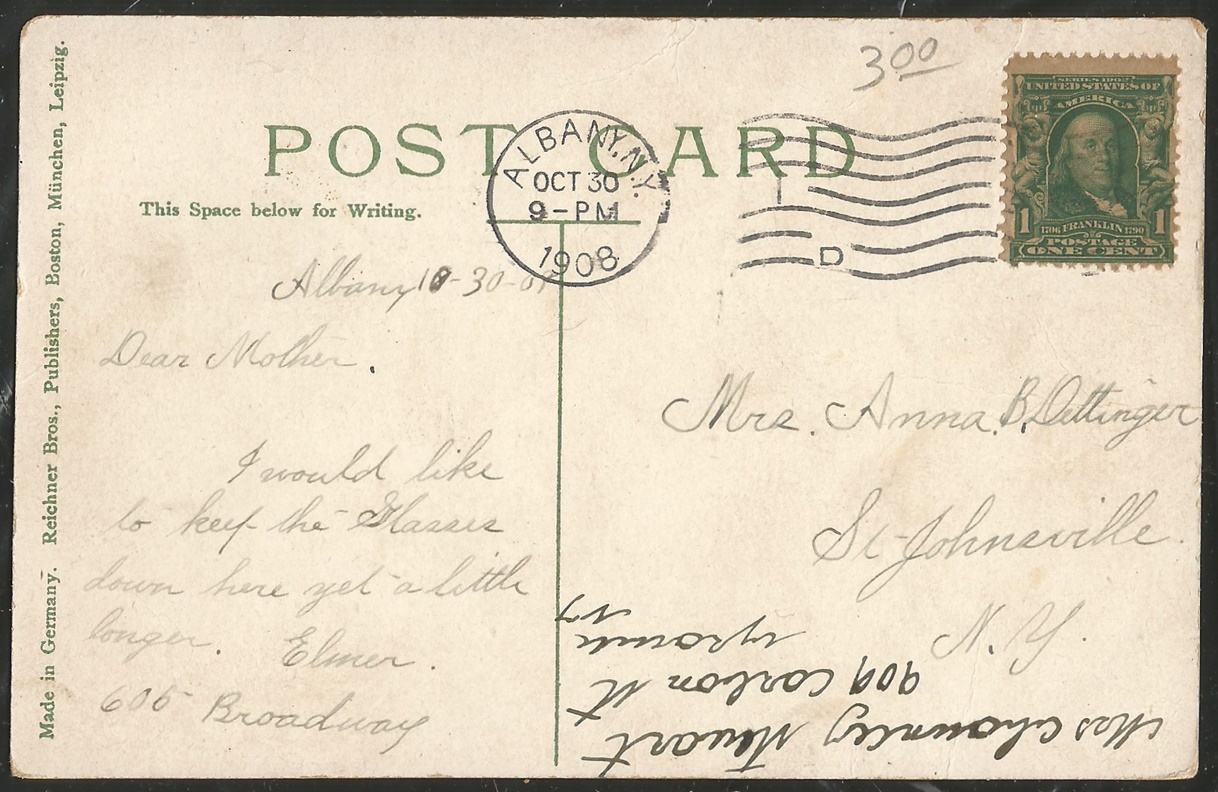 3.00
POST CARD
This Space below for Writing.
ALBANY, N.Y.
OCT 30
9-PM
1908
D
SERIES 1902
UNITED STATES OF
AMERICA
1 1
1706 FRANKLIN 1790
POSTAGE
ONE CENT
Albany 10-30-08
Dear Mother.
I would like
to keep the Glasses
down here yet a little
longer. Elmer.
605 Broadway
Mrs. Anna B. Dettinger
St Johnsville.
N.Y.
Mrs Chauncey Stewart
909 Carbon St
NY
Made in Germany. Reichner Bros., Publishers, Boston, München, Leipzig.